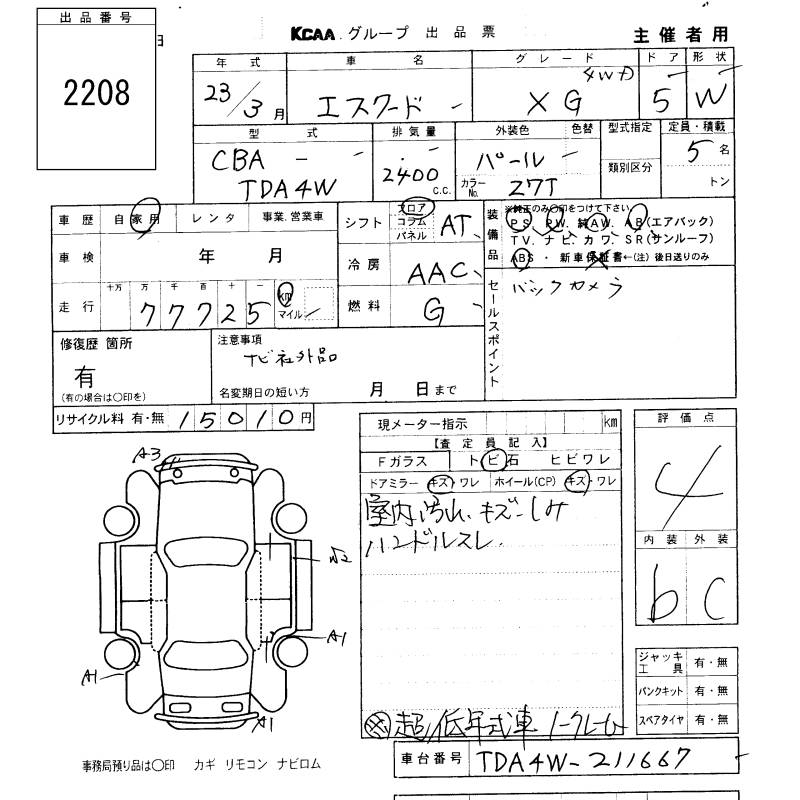 出品番号
2208
日
KCAA グループ 出品票
主催者用
年式 車名 グレード ドア 形状
23/3月 エスクード XG 4WD 5 W
型式 排気量 外装色 色替 型式指定 定員・積載
CBA
TDA4W
2400 C.C.
パール
カラーNo. Z7T
類別区分
5名
トン
車歴 自家用 レンタ 事業.営業車
車検 年 月
十万 万 千 百 十 一
走行 77725 km マイル
シフト フロア コラム パネル AT
冷房 AAC
燃料 G
装備品
※純正のみ〇印をつけて下さい
PS. PW. 純AW. AB(エアバック)
TV. ナビ. カワ. SR(サンルーフ)
ABS ・ 新車保証書←(注)後日送りのみ
セールスポイント
バックカメラ
修復歴 箇所
有
(有の場合は〇印を)
注意事項
ナビ社外品
名変期日の短い方 月 日まで
リサイクル料 有・無 15010円
現メーター指示 km
【査定員記入】
Fガラス トビ石 ヒビワレ
ドアミラー キズ・ワレ ホイール(CP) キズ・ワレ
室内汚れ、キズ、シミ
ハンドルスレ
超低年式車 ノークレーム
評価点
4
内装 外装
b C
A3
A1
A1
A1
ジャッキ工具 有・無
パンクキット 有・無
スペアタイヤ 有・無
車台番号 TDA4W-211667
事務局預り品は〇印 カギ リモコン ナビロム